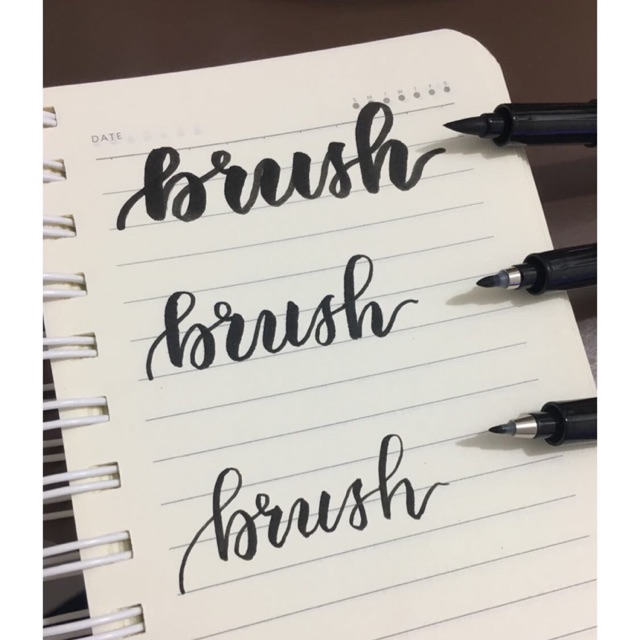 S M T W T F S
DATE
brush
brush
brush